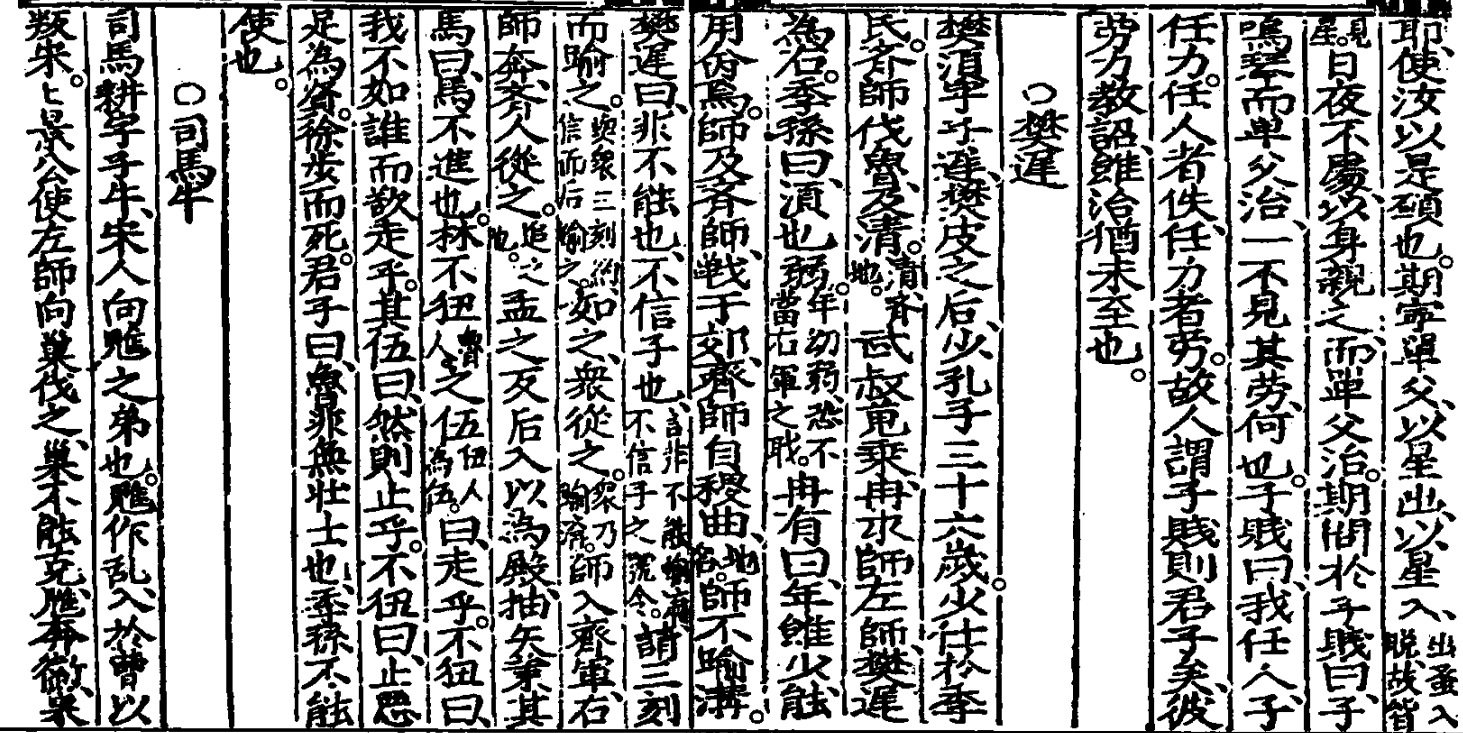 耶、使汝以是碩也。期宰單父、以星出、以星入、出蚤入脱、故皆
見星。日夜不處、以身親之、而單父治。期問於子賤曰、子
鳴琴而單父治、一不見其劳、何也。子賤曰、我任人、子
任力。任人者佚、任力者劳。故人謂子賤則君子矣、彼
劳力教詔、雖治猶未至也。
○樊遲
樊湏字子遲、樊皮之后、少孔子三十六歲。少仕於季
氏。斉師伐魯、及清。清斉地。武叔乗冉求師左師、樊遲
為右。季孫曰、湏也弱。年幼弱、恐不當右軍之戢。冉有曰、年雖少、能
用命焉。師及斉師、戦于郊、齊師自稷曲、地名。師不踰溝。
樊遲曰、非不能也、不信子也、言非不能踰溝、不信子之號令。請三刻
而踰之。與衆三刻約信而后踰之。如之、衆從之。衆乃踰溝。師入齊軍、右
師奔、斉人從之。追之也。孟之反后入以為殿、抽矢策其
馬曰、馬不進也。林不狃魯人之伍伍人為伍。曰、走乎。不狃曰、
我不如誰而欲走乎。其伍曰、然則止乎。不狃曰、止惡
足為賢。徐步而死。君子曰、魯非無壮士也、季孫不能
使也。
○司馬牛
司馬耕字子牛、宋人向魋之弟也。魋作乱、入於曹以
叛宋。ヒ景公使左師向巢伐之、巢不能克、魋奔衛、巢